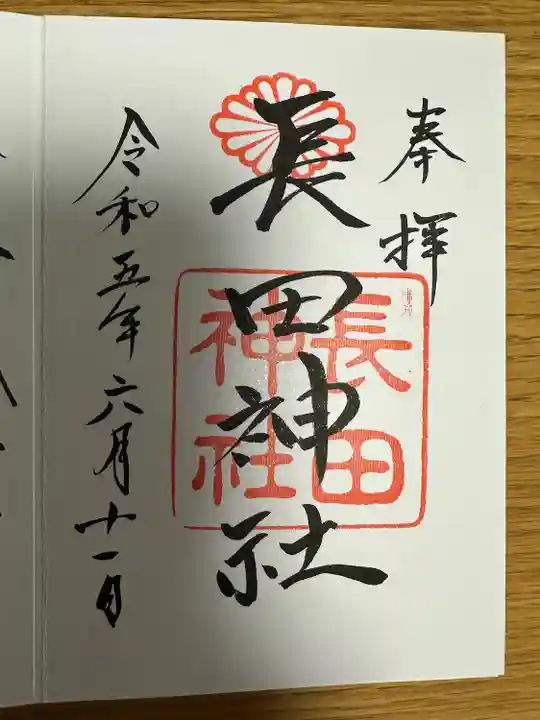 奉拝
長田神社
長田神社
令和五年六月十一日